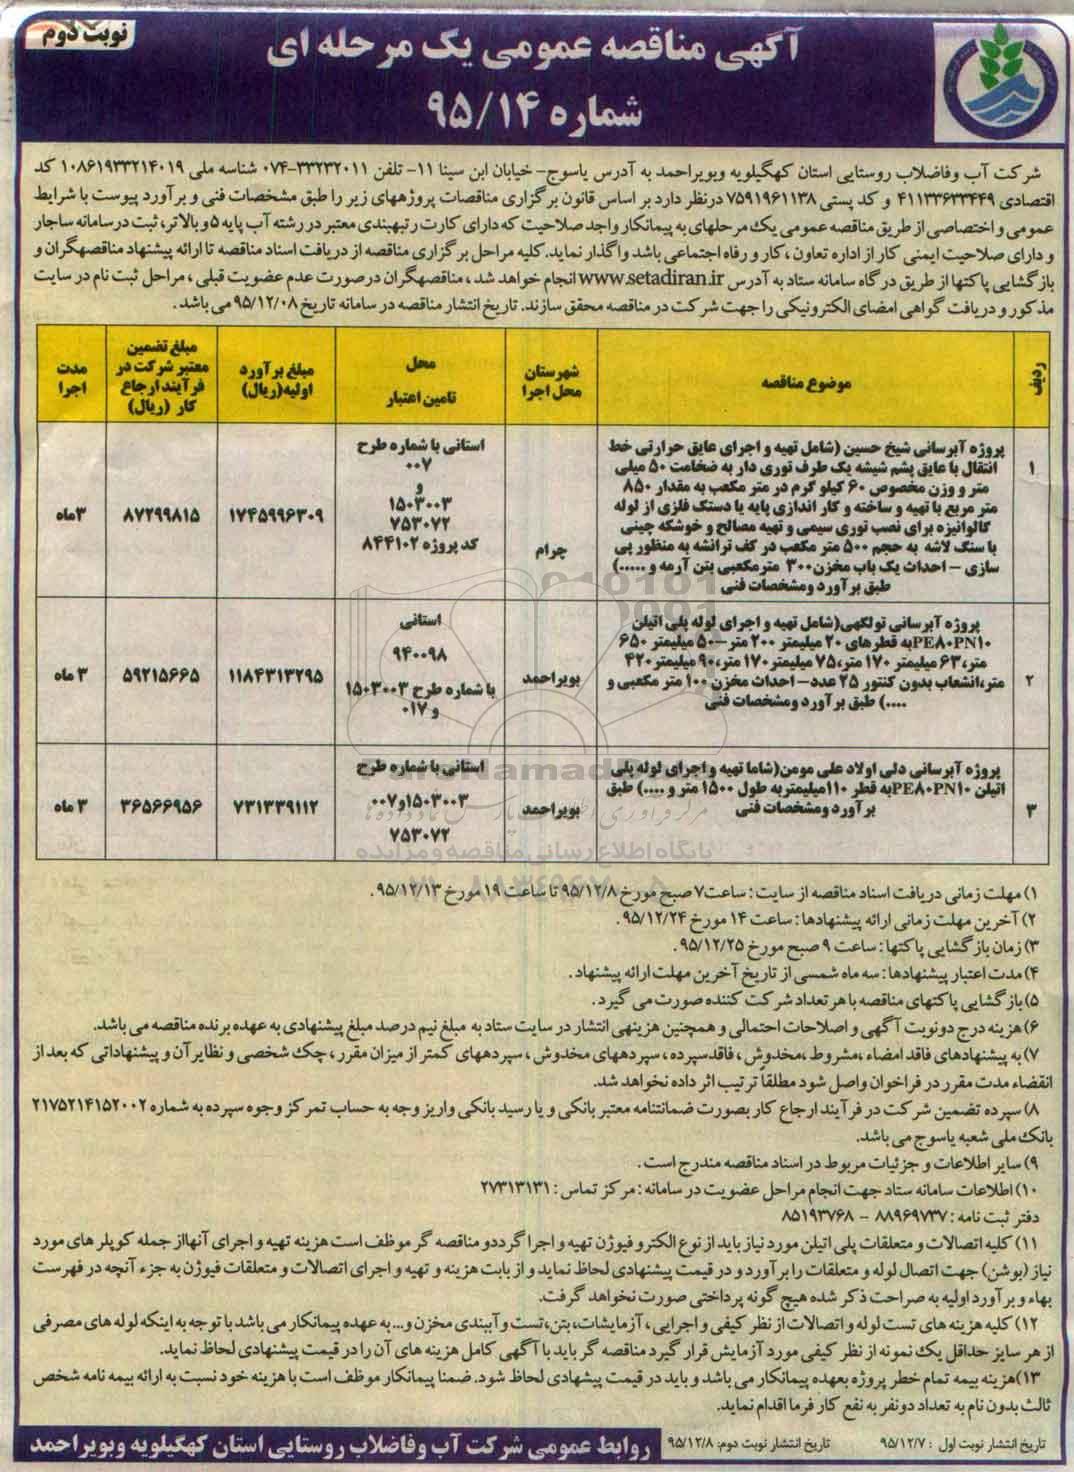 نوبت دوم
آگهی مناقصه عمومی یک مرحله ای
شماره ۹۵/۱۴
شرکت آب وفاضلاب روستایی استان کهگیلویه وبویراحمد به آدرس یاسوج- خیابان ابن سینا ۱۱- تلفن ۳۳۲۳۲۰۱۱-۰۷۴ شناسه ملی ۱۰۸۶۱۹۳۳۲۱۴۰۱۹ کد
اقتصادی ۴۱۱۳۳۶۳۳۴۴۹ و کد پستی ۷۵۹۱۹۶۱۱۳۸ درنظر دارد بر اساس قانون برگزاری مناقصات پروژههای زیر را طبق مشخصات فنی و برآورد پیوست با شرایط
عمومی و اختصاصی از طریق مناقصه عمومی یک مرحلهای به پیمانکار واجد صلاحیت که دارای کارت رتبهبندی معتبر در رشته آب پایه ۵ و بالاتر، ثبت در سامانه ساجار
و دارای صلاحیت ایمنی کار از اداره تعاون ، کار و رفاه اجتماعی باشد واگذار نماید. کلیه مراحل برگزاری مناقصه از دریافت اسناد مناقصه تا ارائه پیشنهاد مناقصهگران و
بازگشایی پاکتها از طریق درگاه سامانه ستاد به آدرس www.setadiran.ir انجام خواهد شد ، مناقصهگران درصورت عدم عضویت قبلی ، مراحل ثبت نام در سایت
مذکور و دریافت گواهی امضای الکترونیکی را جهت شرکت در مناقصه محقق سازند. تاریخ انتشار مناقصه در سامانه تاریخ ۹۵/۱۲/۰۸ می باشد.
ردیف
موضوع مناقصه
شهرستان محل اجرا
محل تامین اعتبار
مبلغ برآورد اولیه(ریال)
مبلغ تضمین معتبر شرکت در فرآیند ارجاع کار (ریال)
مدت اجرا
۱
پروژه آبرسانی شیخ حسین (شامل تهیه و اجرای عایق حرارتی خط
انتقال با عایق پشم شیشه یک طرف توری دار به ضخامت ۵۰ میلی
متر و وزن مخصوص ۶۰ کیلو گرم در متر مکعب به مقدار ۸۵۰
متر مربع با تهیه و ساخته و کار اندازی پایه یا دستک فلزی از لوله
گالوانیزه برای نصب توری سیمی و تهیه مصالح و خوشکه چینی
با سنگ لاشه به حجم ۵۰۰ متر مکعب در کف ترانشه به منظور پی
سازی – احداث یک باب مخزن ۳۰۰ مترمکعبی بتن آرمه و .....)
طبق برآورد ومشخصات فنی
چرام
استانی با شماره طرح
۰۰۷
و
۱۵۰۳۰۰۳
۷۵۳۰۷۲
کد پروژه ۸۴۴۱۰۲
۱۷۴۵۹۹۶۳۰۹
۸۷۲۹۹۸۱۵
۳ماه
۲
پروژه آبرسانی تولکهی(شامل تهیه و اجرای لوله پلی اتیلن
PE۸۰PN۱۰به قطرهای ۲۰ میلیمتر ۲۰۰ متر–۵۰ میلیمتر ۶۵۰
متر،۶۳ میلیمتر ۱۷۰ متر،۷۵ میلیمتر۱۷۰ متر،۹۰ میلیمتر۴۲۰
متر،انشعاب بدون کنتور ۲۵ عدد– احداث مخزن ۱۰۰ متر مکعبی و
....) طبق برآورد ومشخصات فنی
بویراحمد
استانی
۹۴۰۰۹۸
با شماره طرح ۱۵۰۳۰۰۳
و ۰۱۷
۱۱۸۴۳۱۳۲۹۵
۵۹۲۱۵۶۶۵
۳ ماه
۳
پروژه آبرسانی دلی اولاد علی مومن(شاما تهیه و اجرای لوله پلی
اتیلن PE۸۰PN۱۰به قطر ۱۱۰میلیمتربه طول ۱۵۰۰ متر و ....) طبق
برآورد ومشخصات فنی
بویراحمد
استانی با شماره طرح
۱۵۰۳۰۰۳و۰۰۷
۷۵۳۰۷۲
۷۳۱۳۳۹۱۱۲
۳۶۵۶۶۹۵۶
۳ ماه
پایگاه اطلاع رسانی مناقصه و مزایده
۱) مهلت زمانی دریافت اسناد مناقصه از سایت : ساعت۷ صبح مورخ ۹۵/۱۲/۸ تا ساعت ۱۹ مورخ ۹۵/۱۲/۱۳ .
۲) آخرین مهلت زمانی ارائه پیشنهادها : ساعت ۱۴ مورخ ۹۵/۱۲/۲۴ .
۳) زمان بازگشایی پاکتها : ساعت ۹ صبح مورخ ۹۵/۱۲/۲۵ .
۴) مدت اعتبار پیشنهادها : سه ماه شمسی از تاریخ آخرین مهلت ارائه پیشنهاد .
۵) بازگشایی پاکتهای مناقصه با هر تعداد شرکت کننده صورت می گیرد .
۶) هزینه درج دونوبت آگهی و اصلاحات احتمالی و همچنین هزینهی انتشار در سایت ستاد به مبلغ نیم درصد مبلغ پیشنهادی به عهده برنده مناقصه می باشد.
۷) به پیشنهادهای فاقد امضاء ،مشروط ،مخدوش ، فاقدسپرده ، سپردههای مخدوش ، سپردههای کمتر از میزان مقرر ، چک شخصی و نظایر آن و پیشنهاداتی که بعد از
انقضاء مدت مقرر در فراخوان واصل شود مطلقاً ترتیب اثر داده نخواهد شد.
۸) سپرده تضمین شرکت در فرآیند ارجاع کار بصورت ضمانتنامه معتبر بانکی و یا رسید بانکی واریز وجه به حساب تمرکز وجوه سپرده به شماره ۲۱۷۵۲۱۴۱۵۲۰۰۲
بانک ملی شعبه یاسوج می باشد.
۹) سایر اطلاعات و جزئیات مربوط در اسناد مناقصه مندرج است .
۱۰) اطلاعات سامانه ستاد جهت انجام مراحل عضویت در سامانه : مرکز تماس : ۲۷۳۱۳۱۳۱
دفتر ثبت نامه : ۸۸۹۶۹۷۳۷ – ۸۵۱۹۳۷۶۸
۱۱) کلیه اتصالات و متعلقات پلی اتیلن مورد نیاز باید از نوع الکترو فیوژن تهیه و اجرا گرددو مناقصه گر موظف است هزینه تهیه و اجرای آنهااز جمله کوپلر های مورد
نیاز (بوشن) جهت اتصال لوله و متعلقات را برآورد و در قیمت پیشنهادی لحاظ نماید و از بابت هزینه و تهیه و اجرای اتصالات و متعلقات فیوژن به جزء آنچه در فهرست
بهاء و برآورد اولیه به صراحت ذکر شده هیچ گونه پرداختی صورت نخواهد گرفت.
۱۲) کلیه هزینه های تست لوله و اتصالات از نظر کیفی و اجرایی ، آزمایشات، بتن،تست و آببندی مخزن و... به عهده پیمانکار می باشد با توجه به اینکه لوله های مصرفی
از هر سایز حداقل یک نمونه از نظر کیفی مورد آزمایش قرار گیرد مناقصه گر باید با آگهی کامل هزینه های آن را در قیمت پیشنهادی لحاظ نماید.
۱۳)هزینه بیمه تمام خطر پروژه بعهده پیمانکار می باشد و باید در قیمت پیشهادی لحاظ شود. ضمنا پیمانکار موظف است با هزینه خود نسبت به ارائه بیمه نامه شخص
ثالث بدون نام به تعداد دونفر به نفع کار فرما اقدام نماید.
تاریخ انتشار نوبت اول : ۹۵/۱۲/۷
تاریخ انتشار نوبت دوم: ۹۵/۱۲/۸
روابط عمومی شرکت آب وفاضلاب روستایی استان کهگیلویه وبویراحمد